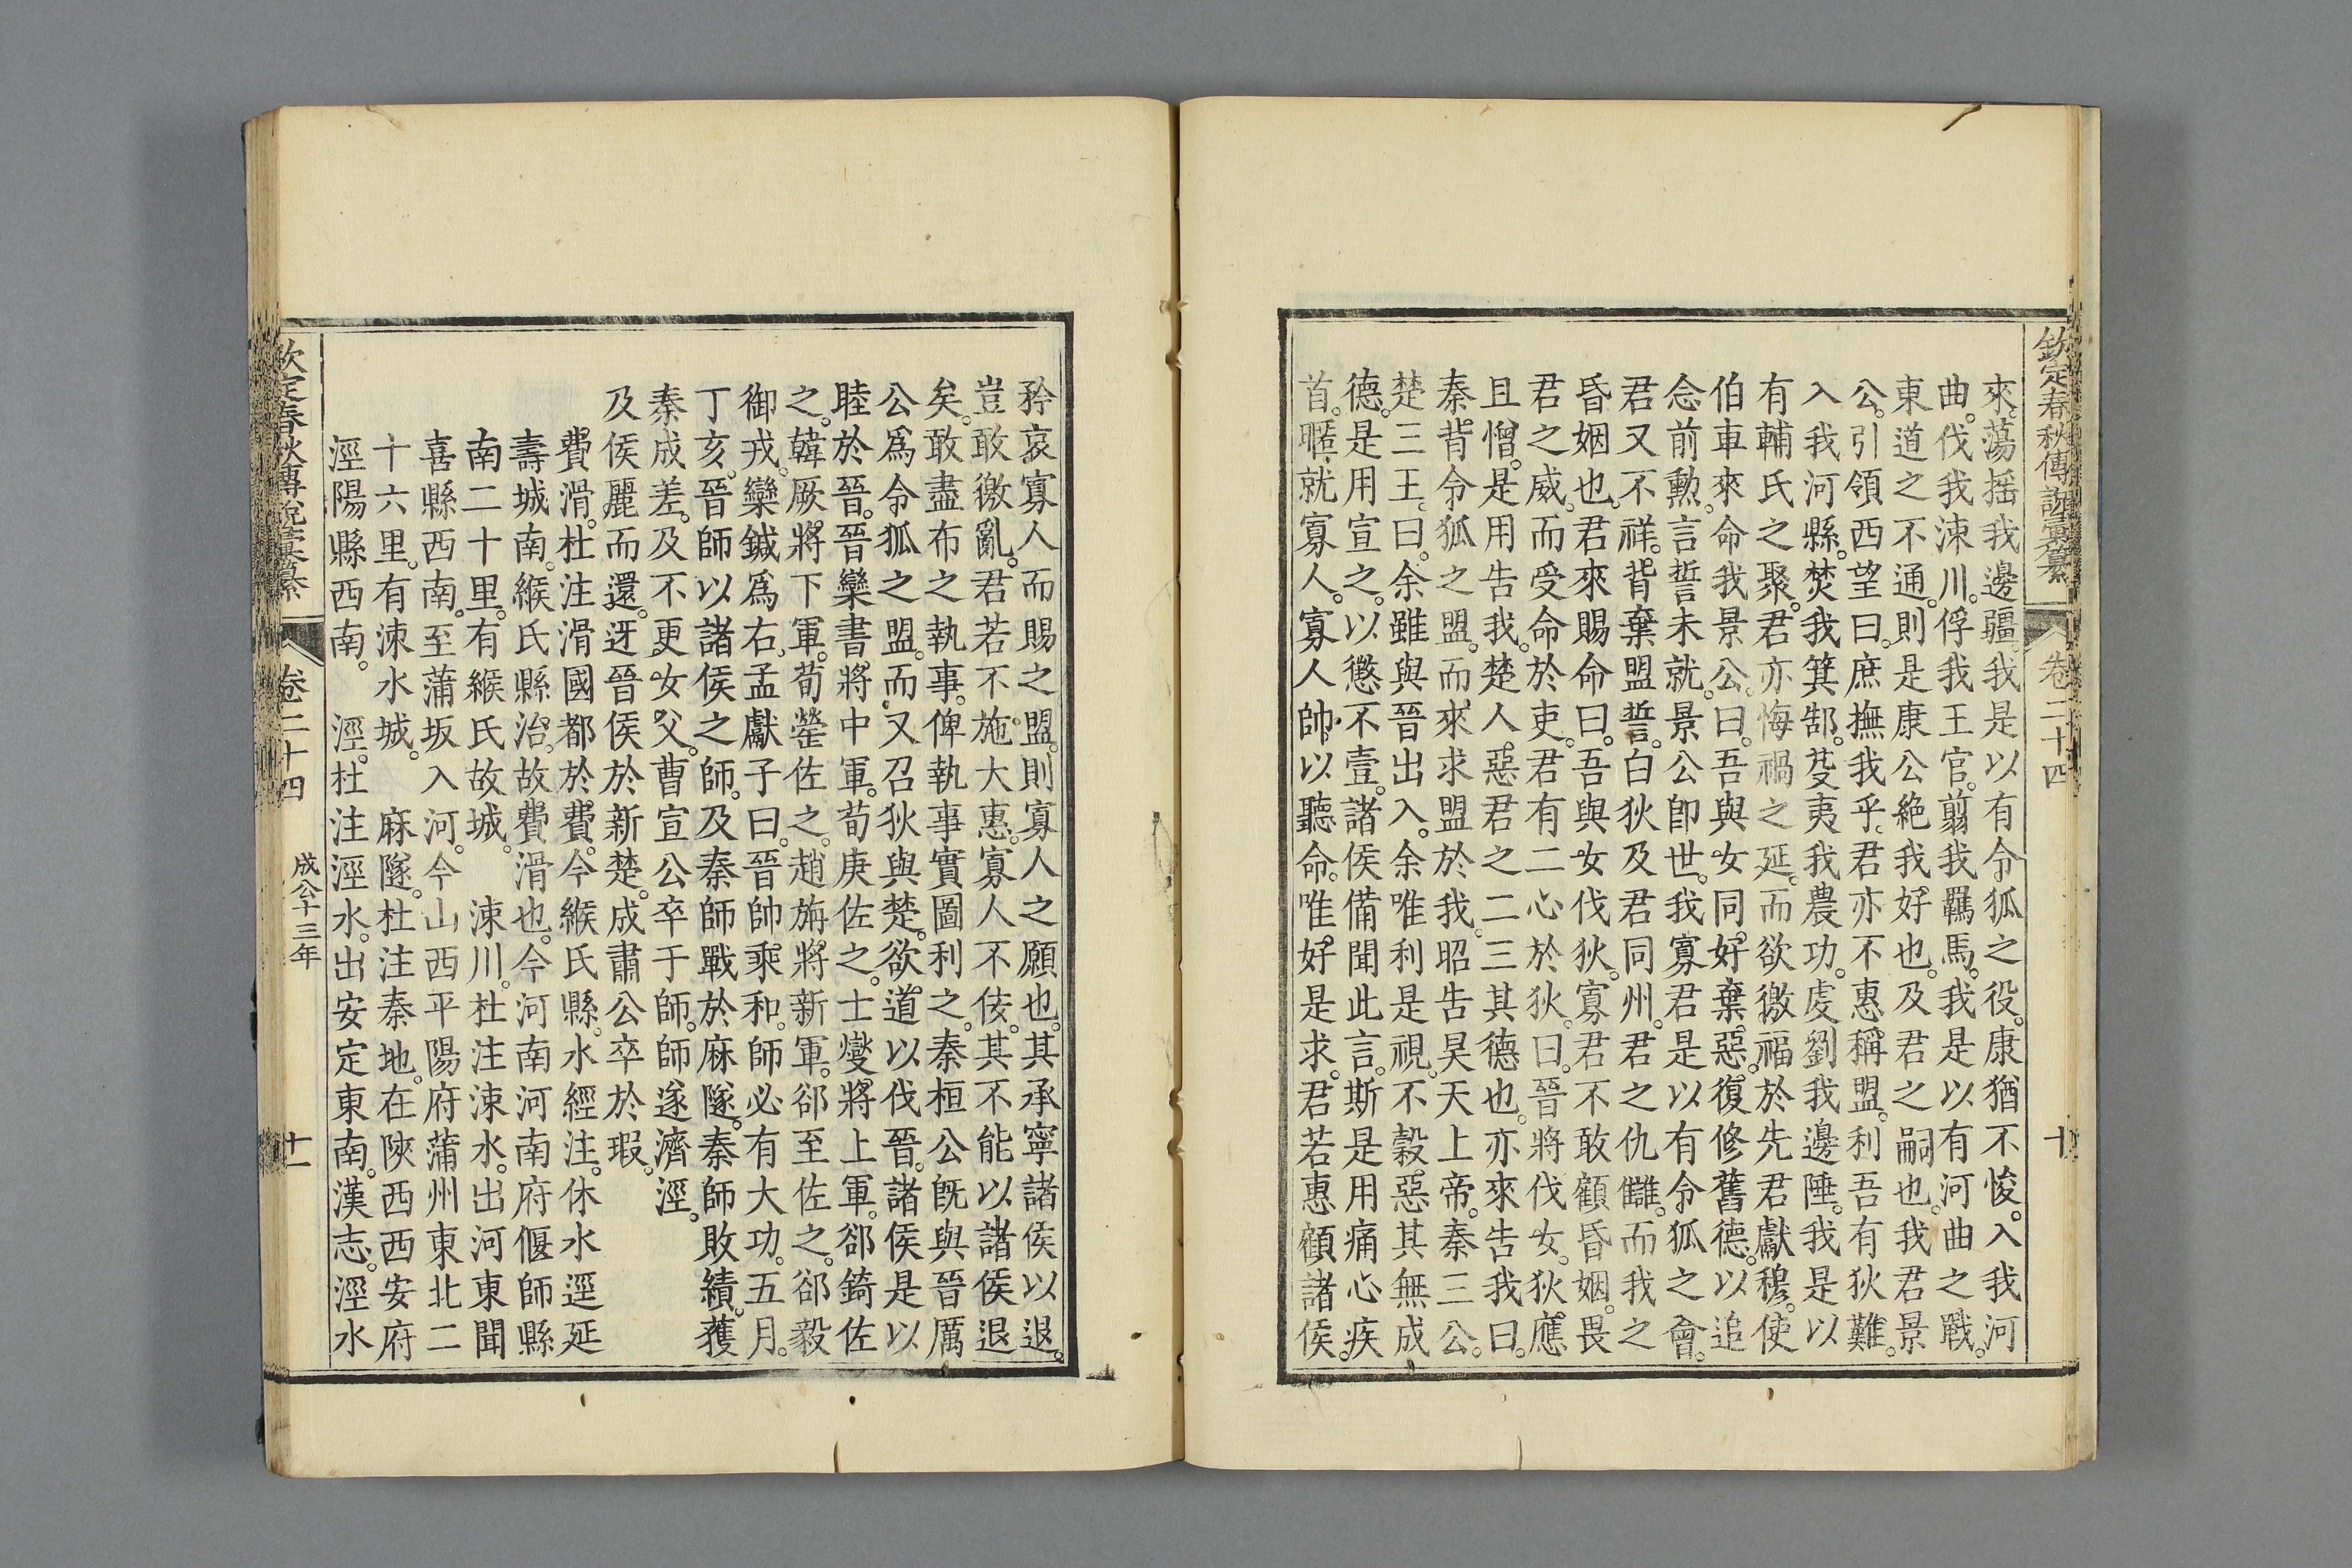 欽定春秋傳說彙纂 卷二十四 十
來。蕩搖我邊疆。我是以有令狐之役。康猶不悛。入我河
曲。伐我涑川。俘我王官。翦我羈馬。我是以有河曲之戰。
東道之不通。則是康公絶我好也。及君之嗣也。我君景
公。引領西望曰。庶撫我乎。君亦不惠稱盟。利吾有狄難。
入我河縣。焚我箕郜。芟夷我農功。虔劉我邊陲。我是以
有輔氏之聚。君亦悔禍之延。而欲徼福於先君獻穆。使
伯車來命我景公。曰。吾與女同好棄惡。復修舊德。以追
念前勲。言誓未就。景公卽世。我寡君是以有令狐之會。
君又不祥。背棄盟誓。白狄及君同州。君之仇讎。而我之
昏姻也。君來賜命曰。吾與女伐狄。寡君不敢顧昏姻。畏
君之威。而受命於吏。君有二心於狄。曰。晉將伐女。狄應
且憎。是用告我。楚人惡君之二三其德也。亦來告我曰。
秦背令狐之盟。而來求盟於我。昭告昊天上帝。秦三公。
楚三王。曰。余雖與晉出入。余唯利是視。不穀惡其無成
德。是用宣之。以懲不壹。諸侯備聞此言。斯是用痛心疾
首。暱就寡人。寡人帥以聽命。唯好是求。君若惠顧諸侯。
矜哀寡人而賜之盟。則寡人之願也。其承寧諸侯以退。
豈敢徼亂。君若不施大惠。寡人不佞。其不能以諸侯退
矣。敢盡布之執事。俾執事實圖利之。秦桓公旣與晉厲
公爲令狐之盟。而又召狄與楚。欲道以伐晉。諸侯是以
睦於晉。晉欒書將中軍。荀庚佐之。士燮將上軍。郤錡佐
之。韓厥將下軍。荀罃佐之。趙旃將新軍。郤至佐之。郤毅
御戎。欒鍼爲右。孟獻子曰。晉帥乘和。師必有大功。五月。
丁亥。晉師以諸侯之師。及秦師戰於麻隧。秦師敗績。獲
秦成差。及不更女父。曹宣公卒于師。師遂濟涇。
及侯麗而還。迓晉侯於新楚。成肅公卒於瑕。
費滑。杜注滑國都於費。今緱氏縣。水經注。休水逕延
壽城南。緱氏縣治。故費滑也。今河南河南府偃師縣
南二十里。有緱氏故城。 涑川。杜注涑水。出河東聞
喜縣西南。至蒲坂入河。今山西平陽府蒲州東北二
十六里。有涑水城。 麻隧。杜注秦地。在陝西西安府
涇陽縣西南。 涇。杜注涇水。出安定東南。漢志。涇水
欽定春秋傳說彙纂 卷二十四 成公十三年 十一